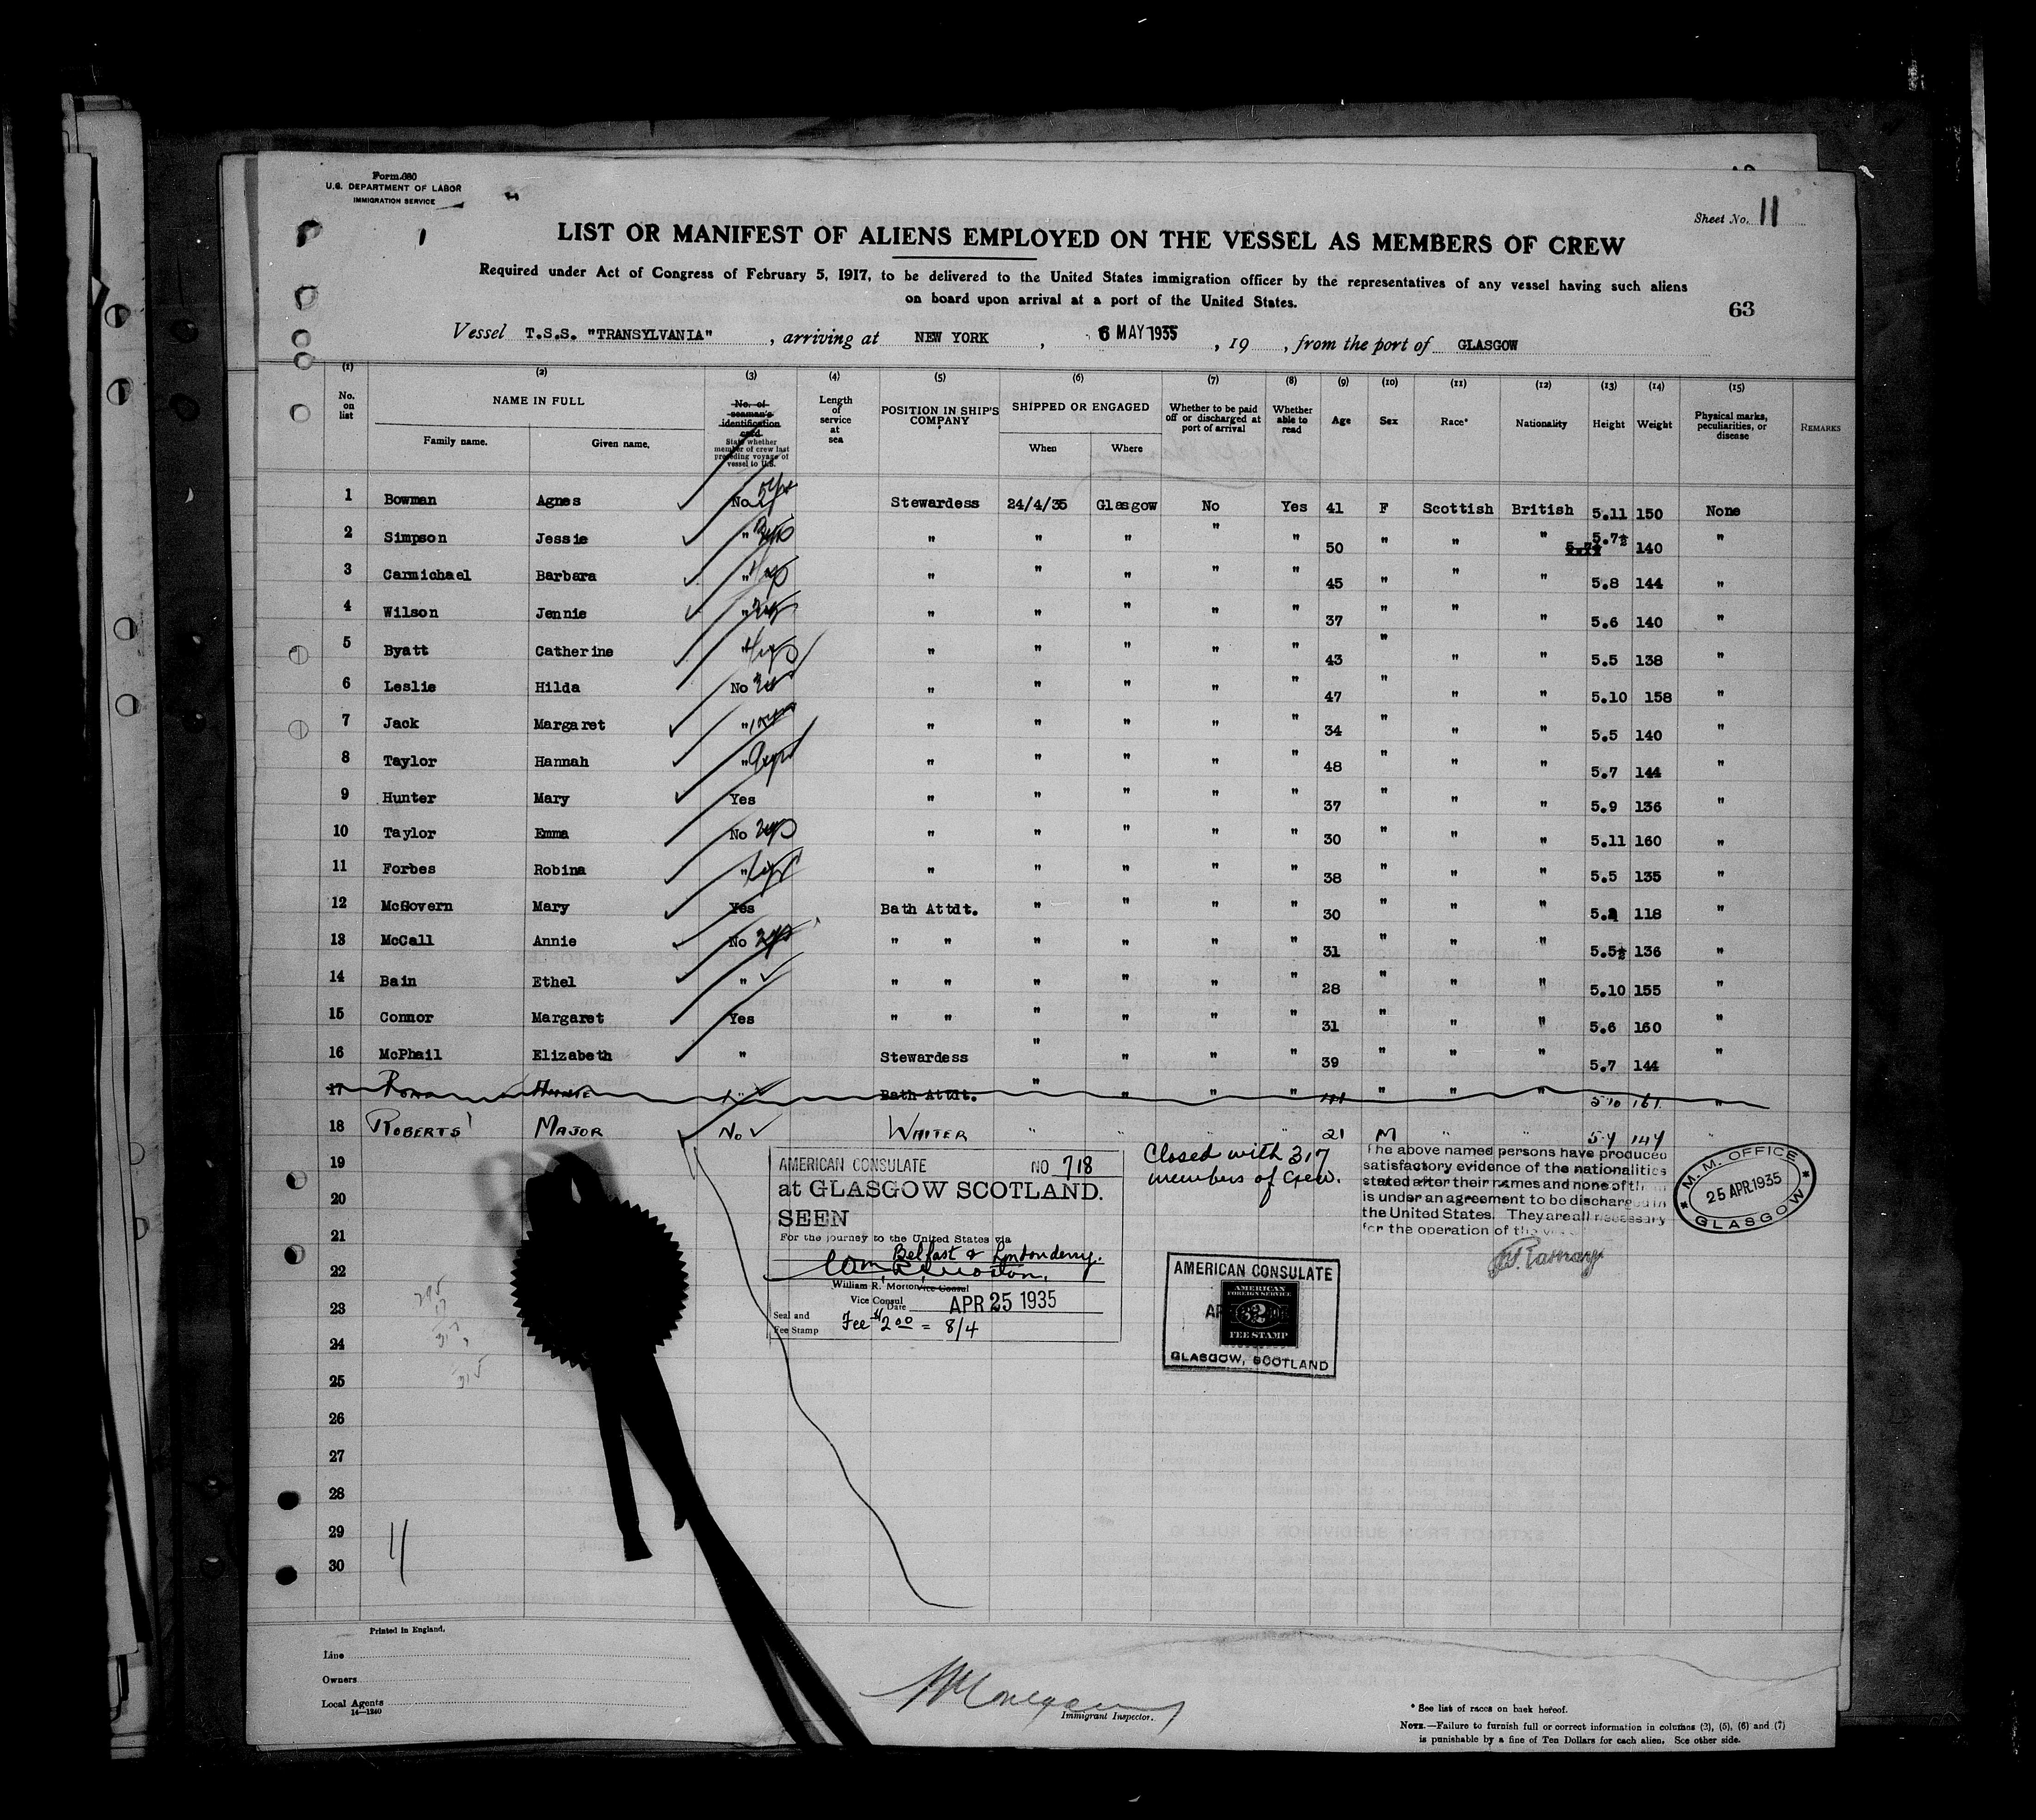 Form 680
U.S. DEPARTMENT OF LABOR
IMMIGRATION SERVICE
Sheet No. 11
LIST OR MANIFEST OF ALIENS EMPLOYED ON THE VESSEL AS MEMBERS OF CREW
Required under Act of Congress of February 5, 1917, to be delivered to the United States immigration officer by the representatives of any vessel having such aliens
on board upon arrival at a port of the United States.
63
Vessel T.S.S. "TRANSYLVANIA", arriving at NEW YORK, 6 MAY 1935, 19 , from the port of GLASGOW
(1) (2) (3) (4) (5) (6) (7) (8) (9) (10) (11) (12) (13) (14) (15)
No. on list
NAME IN FULL
Family name. Given name.
No. of seaman's identification card
State whether member of crew last preceding voyage of vessel to U.S.
Length of service at sea
POSITION IN SHIP'S COMPANY
SHIPPED OR ENGAGED
When Where
Whether to be paid off or discharged at port of arrival
Whether able to read
Age
Sex
Race*
Nationality
Height
Weight
Physical marks, peculiarities, or disease
REMARKS
1 Bowman Agnes No Stewardess 24/4/35 Glasgow No Yes 41 F Scottish British 5.11 150 None
2 Simpson Jessie " " " " " " 50 " " " 5.7½ 140 "
3 Carmichael Barbara " " " " " " 45 " " " 5.8 144 "
4 Wilson Jennie " " " " " " 37 " " " 5.6 140 "
5 Byatt Catherine " " " " " " 43 " " " 5.5 138 "
6 Leslie Hilda No " " " " " 47 " " " 5.10 158 "
7 Jack Margaret " " " " " " 34 " " " 5.5 140 "
8 Taylor Hannah " " " " " " 48 " " " 5.7 144 "
9 Hunter Mary Yes " " " " " 37 " " " 5.9 136 "
10 Taylor Emma No " " " " " 30 " " " 5.11 160 "
11 Forbes Robina " " " " " " 38 " " " 5.5 135 "
12 McGovern Mary Yes Bath Attdt. " " " " 30 " " " 5. 118 "
13 McCall Annie No " " " " " " 31 " " " 5.5½ 136 "
14 Bain Ethel " " " " " " " 28 " " " 5.10 155 "
15 Connor Margaret Yes " " " " " " 31 " " " 5.6 160 "
16 McPhail Elizabeth " Stewardess " " " " 39 " " " 5.7 144 "
17 Annie " Bath Attdt. " " " " " " " 5 10 161 "
18 ROBERTS MAJOR No WAITER " " " " 21 M " " 5.7 147 "
19
20
21
22
23
24
25
26
27
28
29
30
AMERICAN CONSULATE NO 718
at GLASGOW SCOTLAND.
SEEN
For the journey to the United States via
Belfast & Londonderry.
Wm R. Morton.
William R. Morton Vice Consul
Vice Consul
Date APR 25 1935
Seal and
Fee Stamp Fee $2.00 = 8/4
Closed with 317
members of Crew.
The above named persons have produced
satisfactory evidence of the nationalities
stated after their names and none of them
is under an agreement to be discharged in
the United States. They are all necessary
for the operation of the
M.M. OFFICE
25 APR 1935
GLASGOW
AMERICAN CONSULATE
AMERICAN
FOREIGN SERVICE
2
FEE STAMP
GLASGOW, SCOTLAND
295
317
315
11
Printed in England.
Line
Owners
Local Agents
14—1240
Immigrant Inspector.
* See list of races on back hereof.
NOTE.—Failure to furnish full or correct information in columns (2), (5), (6) and (7)
is punishable by a fine of Ten Dollars for each alien. See other side.